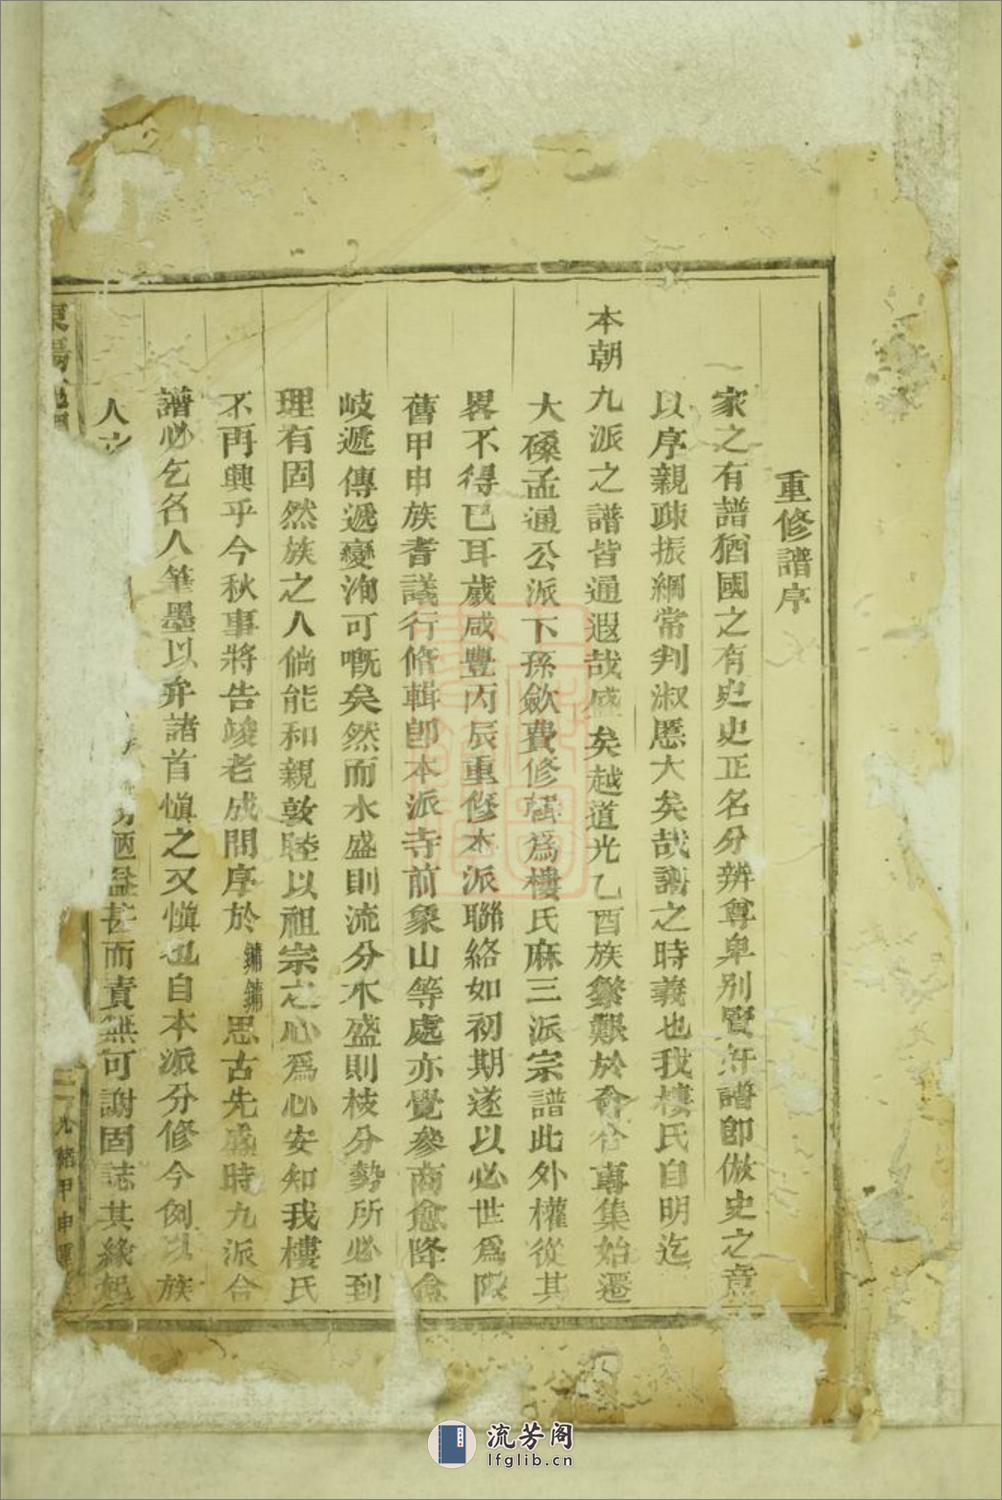 重修譜序
家之有譜猶國之有史史正名分辨尊卑別賢奸譜卽倣史之意
以序親疎振綱常判淑慝大矣哉譜之時義也我樓氏自明迄
本朝九派之譜皆通遐哉盛矣越道光乙酉族繁艱於會合專集始遷
大磉孟通公派下孫歛費修輯爲樓氏麻三派宗譜此外權從其
畧不得已耳歲咸豐丙辰重修本派聯絡如初期遂以必世爲限
舊甲申族耆議行脩輯卽本派寺前象山等處亦覺參商愈降愈
岐遞傳遞變洵可嘅矣然而水盛則流分木盛則枝分勢所必到
理有固然族之人倘能和親敦睦以祖宗之心爲心安知我樓氏
不再興乎今秋事將告竣老成問序於鏞鏞思古先盛時九派合
譜必乞名人筆墨以弁諸首愼之又愼也自本派分修今例以族
人
益甚而責無可謝固誌其緣起
東陽
光緒甲申重
流芳阁
lfglib.cn